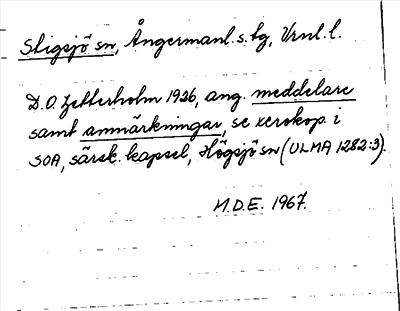 Stigsjö sn, Ångermanl. s. tg, Vrnl. l.
D. O. Zetterholm 1926, ang. meddelare
samt anmärkningar, se xerokop. i
SOA, särsk. kapsel, Högsjö sn (ULMA 1282:3).
M.D.E. 1967.